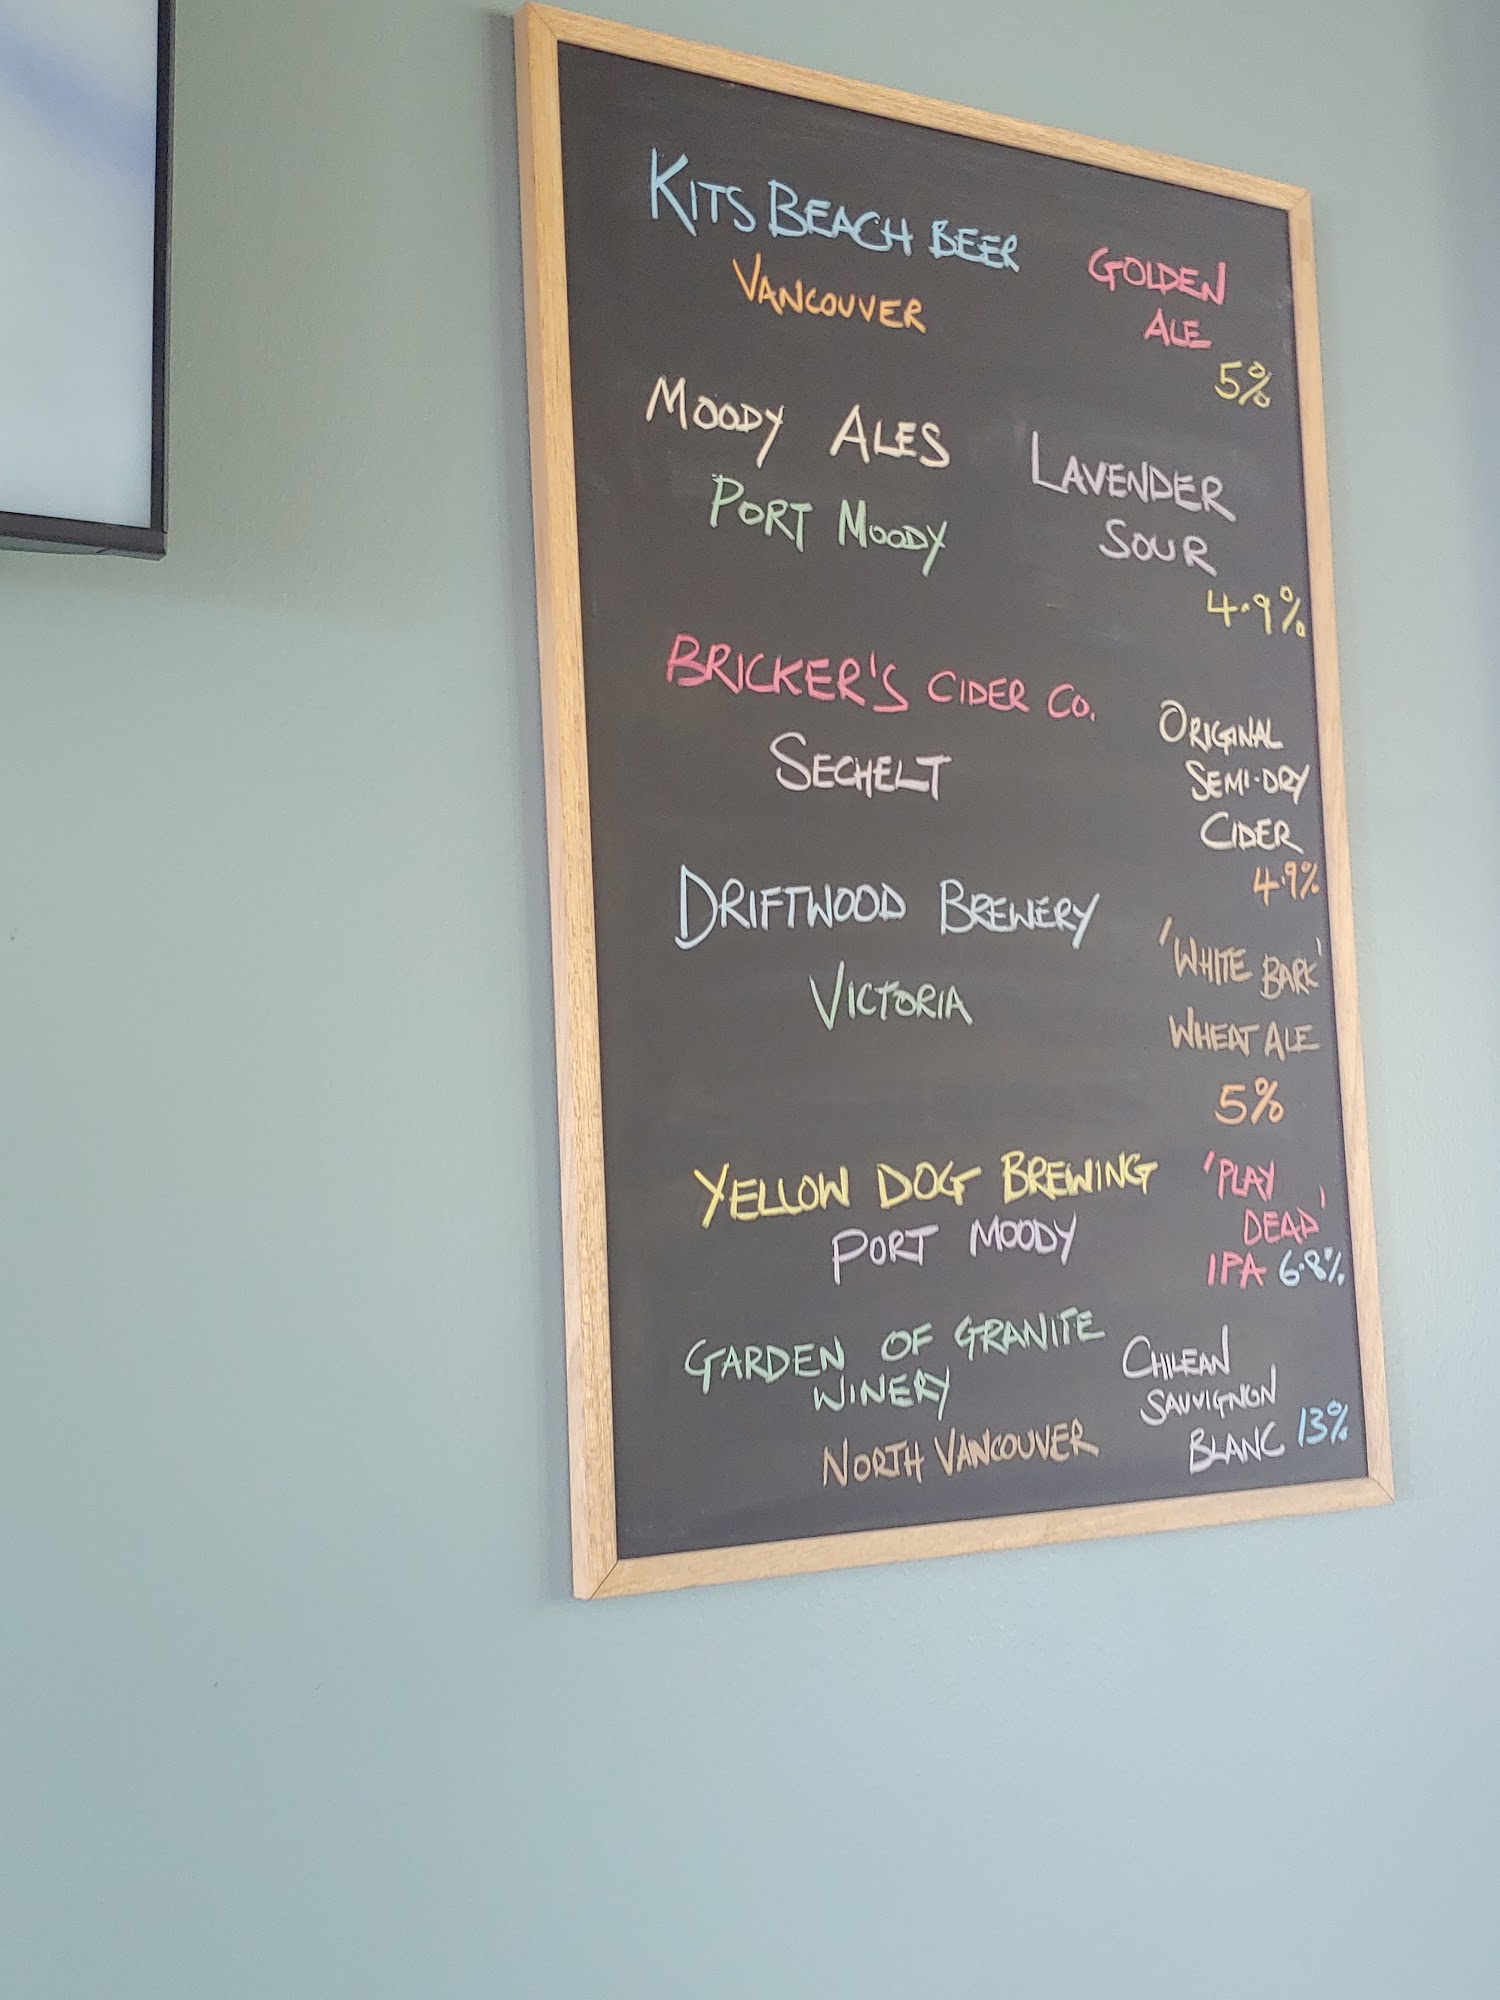 KITS BEACH BEER
VANCOUVER
GOLDEN
ALE
5%
MOODY ALES
PORT MOODY
LAVENDER
SOUR
4.9%
BRICKER'S CIDER CO.
SECHELT
ORIGINAL
SEMI-DRY
CIDER
4.9%
DRIFTWOOD BREWERY
VICTORIA
'WHITE BARK'
WHEAT ALE
5%
YELLOW DOG BREWING
PORT MOODY
'PLAY
DEAD'
IPA 6.8%
GARDEN OF GRANITE
WINERY
NORTH VANCOUVER
CHILEAN
SAUVIGNON
BLANC 13%